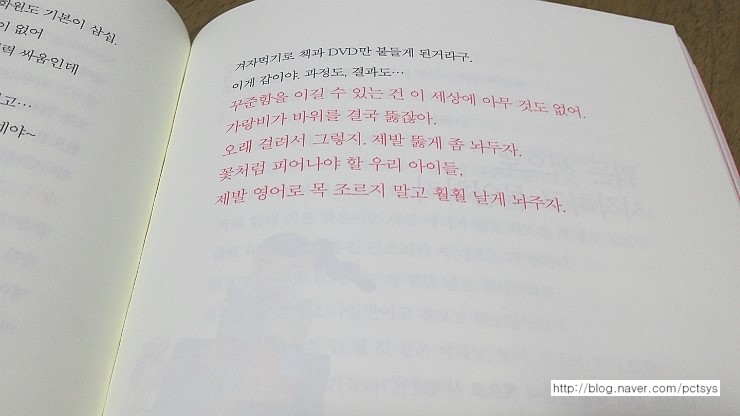 화원도 기본이 삼십.
이 없어
력 싸움인데
고…
데야~
겨자먹기로 책과 DVD만 붙들게 된거라구.
이게 갑이야. 과정도, 결과도…
꾸준함을 이길 수 있는 건 이 세상에 아무 것도 없어.
가랑비가 바위를 결국 뚫잖아.
오래 걸려서 그렇지. 제발 뚫게 좀 놔두자.
꽃처럼 피어나야 할 우리 아이들.
제발 영어로 목 조르지 말고 훨훨 날게 놔주자.
http://blog.naver.com/pctsys